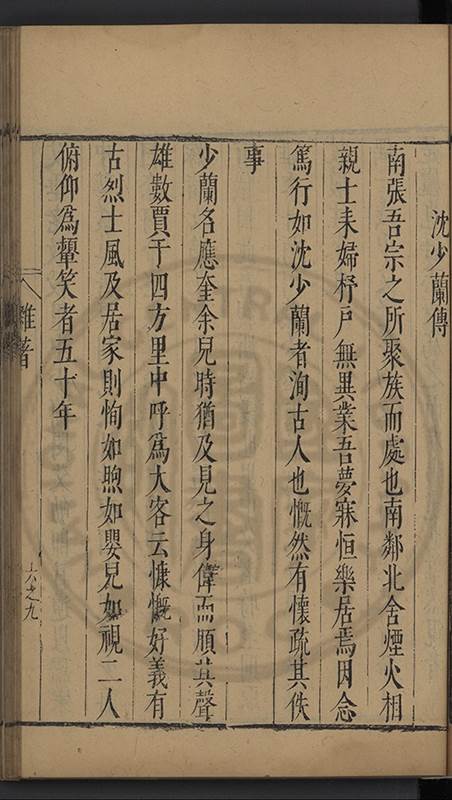 沈少蘭傳
南張吾宗之所聚族而處也南鄰北舍煙火相
親士耒婦杼戶無異業吾夢寐恒樂居焉因念
篤行如沈少蘭者洵古人也慨然有懷疏其佚
事
少蘭名應奎余兒時猶及見之身偉而頎其聲
雄數賈于四方里中呼爲大客云慷慨好義有
古烈士風及居家則恂如煦如嬰兒如視二人
俯仰爲顰笑者五十年
雜著
六之九